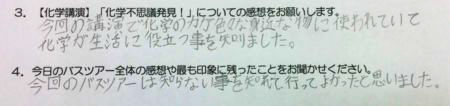 3.【化学講演】「化学不思議発見!」についての感想をお願いします。
今回の講演で化学の力が色々な身近な物に使われていて
化学が生活に役立つ事を知りました。
4. 今日のバスツアー全体の感想や最も印象に残ったことをお聞かせください。
今回のバスツアーは知らない事を知れて行ってよかったと思いました。